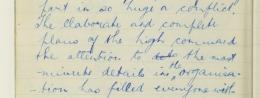 part in so huge a conflict.
The elaborate and complete
plans of the high command
the attention to the most
-minute details in the organisa-
-tion has filled everyone with